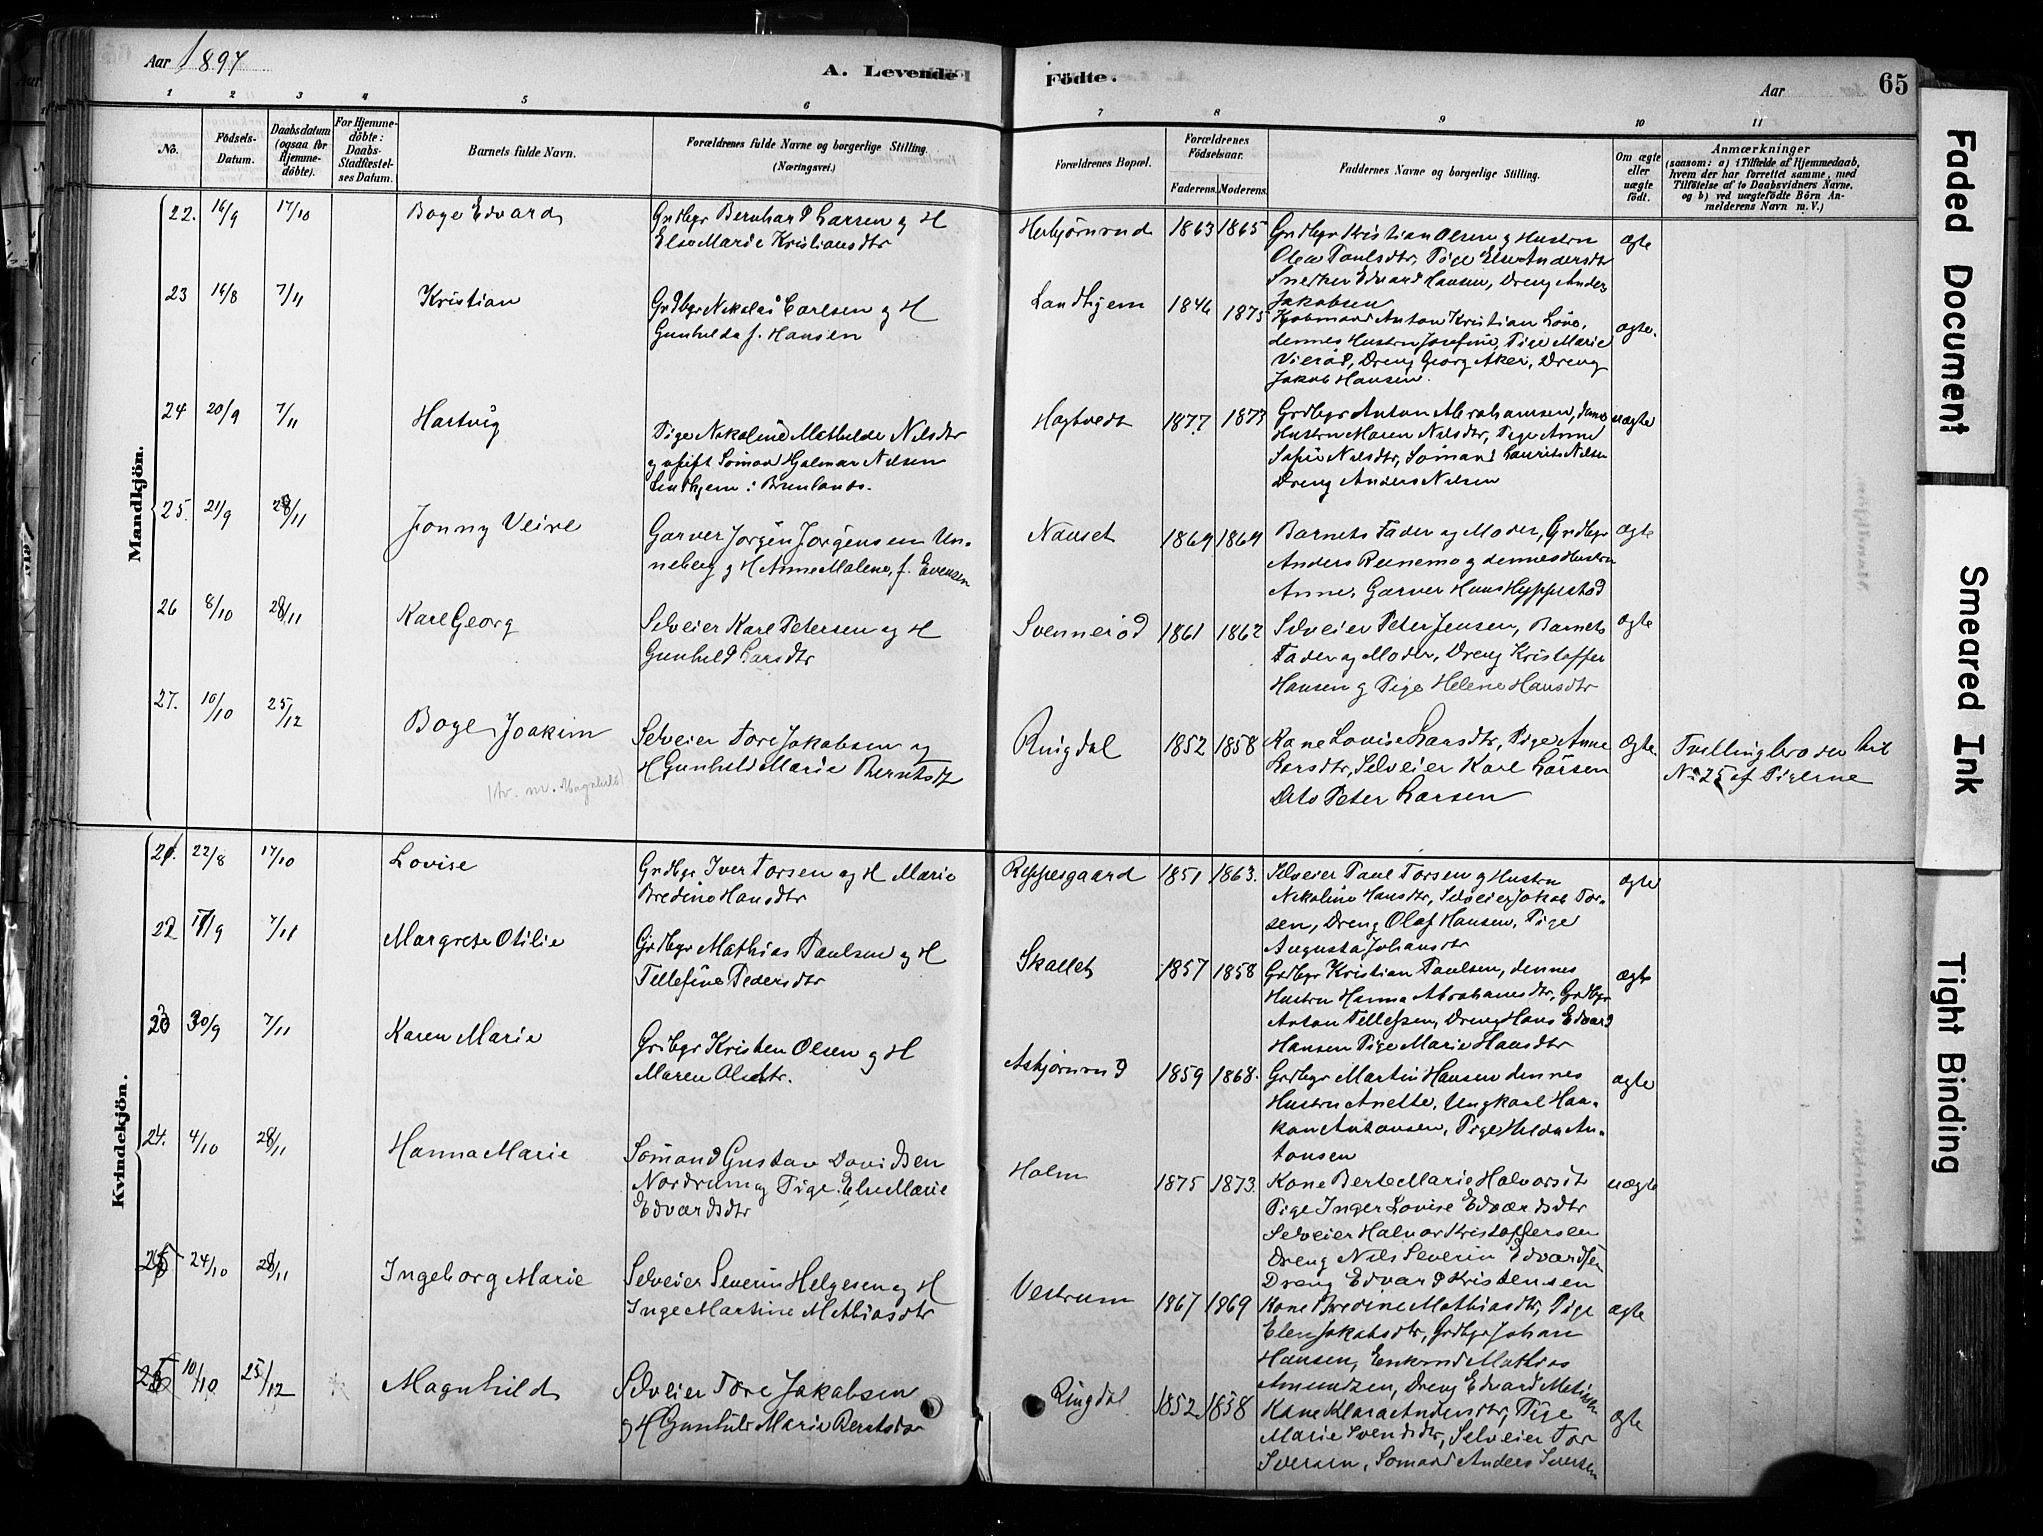 Aar 1897
A. Levende Födte.
Aar
65
1 2 3 4 5 6 7 8 9 10 11
No.
Födsels-Datum.
Daabsdatum (ogsaa for Hjemmedöbte).
For Hjemmedöbte: Daabs-Stadfæstelses Datum.
Barnets fulde Navn.
Forældrenes fulde Navne og borgerlige Stilling. (Næringsvei.)
Forældrenes Bopæl.
Forældrenes Födselsaar.
Faderens. Moderens.
Faddernes Navne og borgerlige Stilling.
Om ægte eller uægte födt.
Anmærkninger
(saasom: a) i Tilfælde af Hjemmedaab,
hvem der har forrettet samme, med
Tilföielse af to Daabsvidners Navne,
og b) ved uægtefödte Börn Anmelderens Navn m. V.)
Mandkjön.
22. 16/9 17/10 Boye Edvard
Grdbgr Bernhard Larsen og H
Else Marie Kristiansdtr
Herbjørnrud 1863 1865
Grdbgr Kristian Olsen og Hustru
Olea Paulsdtr, Pige Else Andersdtr
Snedker Edvard Hansen, Dreng Anders
Jakobsen
ægte
23 16/8 7/11 Kristian
Grdbgr Nikolai Carlsen og H
Gunhilda f. Hansen
Landhjem 1846 1875
Kjøbmand Anton Kristian Løve,
dennes Hustru Josefine, Pige Marie
Vieröd, Dreng Georg Aker, Dreng
Jakob Hansen.
ægte.
24 20/9 7/11 Hartvig
Pige Nikoline Mathilde Nilsdtr
og ugift Sömand Hjalmar Nilsen
Lindhjem i Brunlanes.
Hagtvedt 1877 1873
Grdbgr Anton Abrahamsen, dennes
Hustru Maren Nilsdtr, Pige Anne
Sofie Nilsdtr, Sömand Laurits Nilsen
Dreng Anders Nilsen
uægte
25. 21/9 28/11 Jonny Veire
Garver Jörgen Jörgensen Unneberg
og H Anne Malene, f. Evensen
Nauset 1864 1864
Barnets Fader og Moder, Grdbgr
Anders Reenemo og dennes Hustru
Anne, Garver Hans Hyppestad
ægte
26 8/10 28/11 Karl Georg
Selveier Karl Petersen og H
Gunhild Larsdtr
Svenneröd 1861 1862
Selveier Peter Jensen, Barnets
Fader og Moder, Dreng Kristoffer
Hansen og Pige Helene Hansdtr
ægte
27. 10/10 25/12 Boye Joakim
(tv. m. Magnhild)
Selveier Tore Jakobsen og
H Gunhild Marie Berntsdtr
Ringdal 1852 1858
Kone Lovise Larsdtr, Pige Anne
Larsdtr, Selveier Karl Larsen
Dito Peter Larsen
ægte
Tvillingbroder til
No 25 af Pigerne
Kvindekjön.
21. 22/8 17/10 Lovise
Grdbgr Iver Torsen og H Marie
Bredine Hansdtr
Reppesgaard 1851 1863.
Selveier Paul Torsen og Hustru
Nikoline Hansdtr, Selveier Jakob Torsen,
Dreng Olaf Hansen, Pige
Augusta Johansdtr
ægte
22 17/9 7/11 Margrete Otilie
Grdbgr Mathias Paulsen og H
Tellefine Pedersdtr
Skallet 1857 1858
Grdbgr Kristian Paulsen, dennes
Hustru Hanna Abrahamsdtr, Grdbgr
Anton Tellefsen, Dreng Hans Edvard
Hansen Pige Marie Hansdtr
ægte
23 30/9 7/11 Karen Marie
Grdbgr Kristen Olsen og H
Maren Olsdtr.
Asbjørnrud 1859 1868.
Grdbgr Martin Hansen dennes
Hustru Anette, Ungkarl Haakon
Antonsen, Pige Hilda Antonsen
ægte
24. 4/10 28/11 Hanna Marie
Sömand Gustav Davidsen
Nordrum og Pige Else Marie
Edvardsdtr
Holm 1875 1873.
Kone Berte Marie Halvorsdtr
Pige Inger Lovise Edvardsdtr
Selveier Halvor Kristoffersen
Dreng Nils Severin Edvardsen
Dreng Edvard Kristensen
uægte
25 24/10 28/11 Ingeborg Marie
Selveier Severin Helgesen og H
Inge Martine Mathiasdtr
Vestrum 1867 1869
Kone Bredine Mathiasdtr, Pige
Elen Jakobsdtr, Grdbgr Johan
Hansen, Enkemd Mathias
Amundsen, Dreng Edvard
ægte
25 10/10 25/12 Magnhild
Selveier Tore Jakobsen
og H Gunhild Marie Berntsdtr
Ringdal 1852 1858
Kone Klara Andersdtr, Pige
Marie Svendsdtr, Selveier Tor
Iversen, Sömand Anders Iversen
ægte
Faded Document
Smeared Ink
Tight Binding